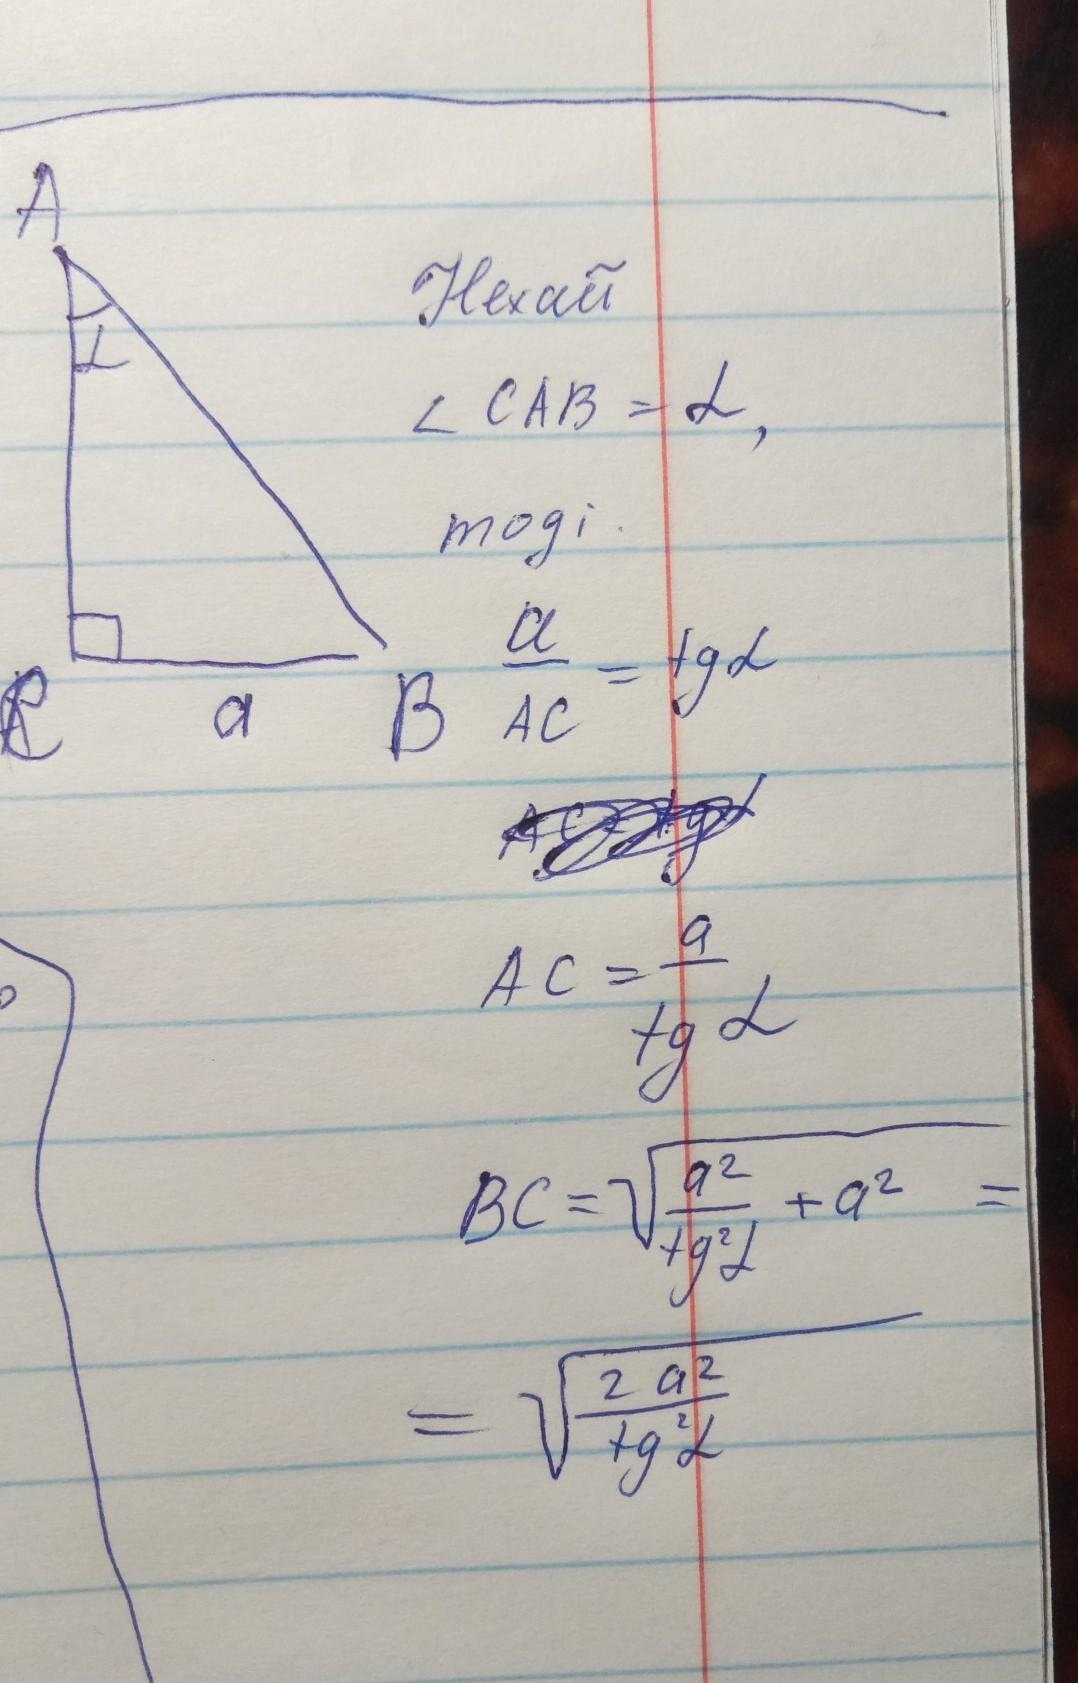 A
α
C
a
B
Нехай
∠ CAB = α,
тоді.
a/AC = tgα
AC = a/tg α
BC = √(a²/tg²α + a²) =
= √(2a²/tg²α)